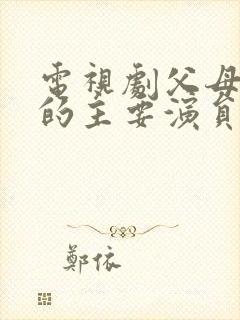 電視劇父母
的主要演員
鄭依